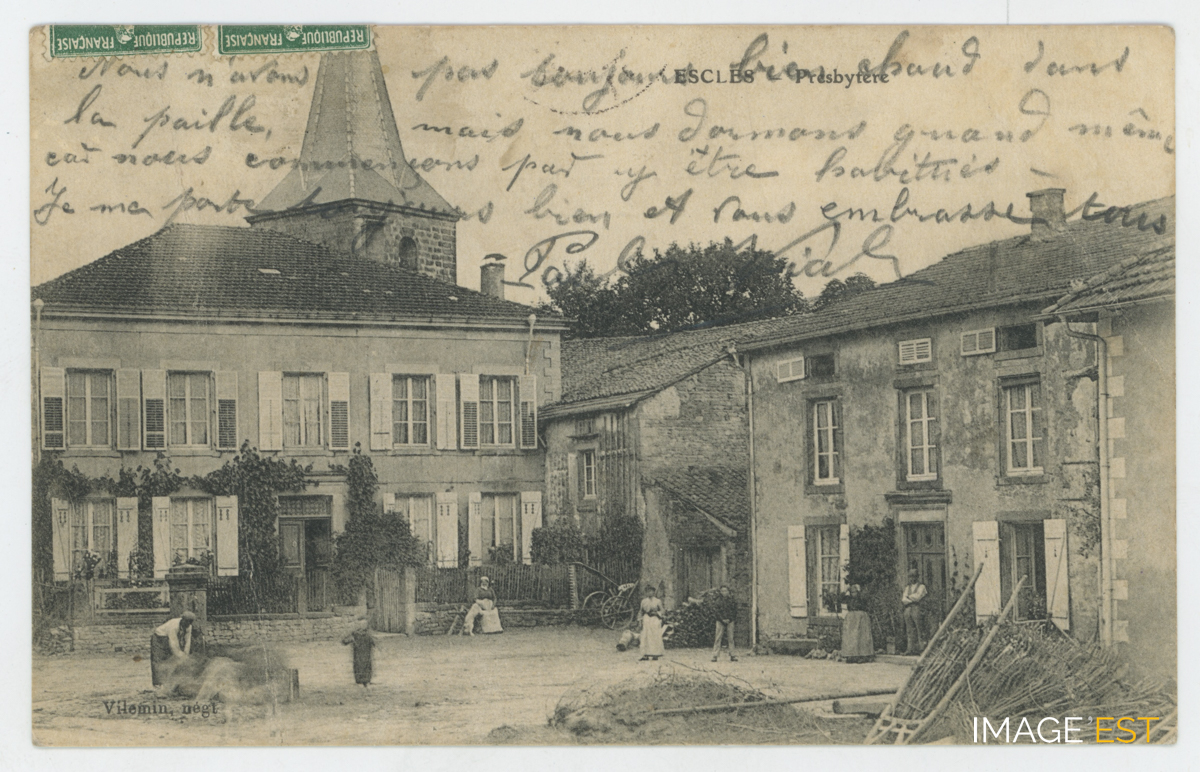 REPUBLIQUE FRANÇAISE REPUBLIQUE FRANÇAISE
ESCLES - Presbytère
Nous n'avons pas toujours bien chaud dans
la paille, mais nous dormons quand même
car nous commençons par y être habittués
Je me porte toujours bien et vous embrasse tous
Vilemin, négt
IMAGE'EST